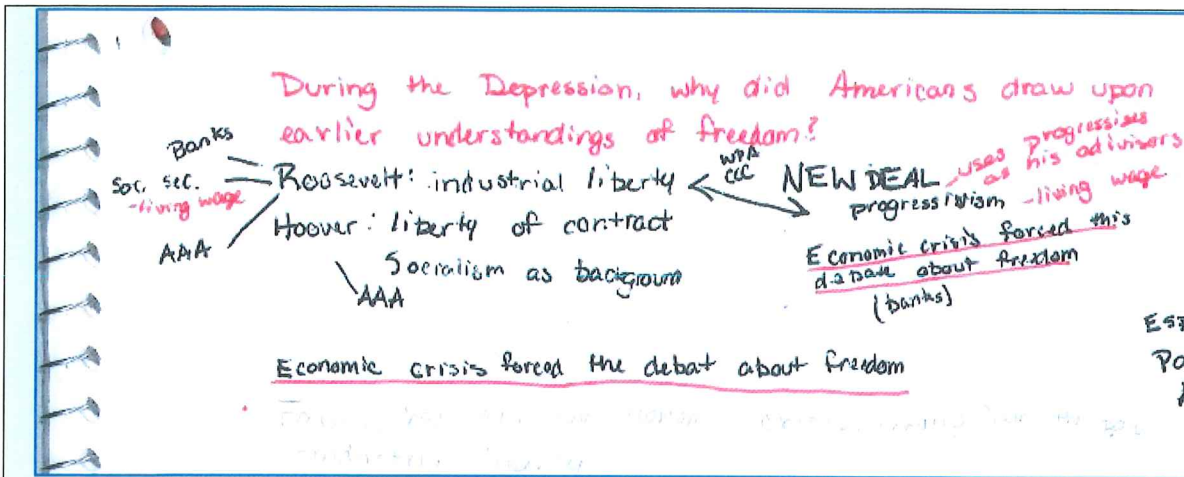 During the Depression, why did Americans draw upon
earlier understandings of freedom?
Banks
Soc. sec.
-living wage
AAA
Roosevelt: industrial liberty
Hoover: liberty of contract
Socialism as backgroun
AAA
WPA
CCC
NEW DEAL
progressivism
uses progressises
as his adivisors
-living wage
Economic crisis forced this
debate about freedom
(banks)
Economic crisis forced the debat about freedom